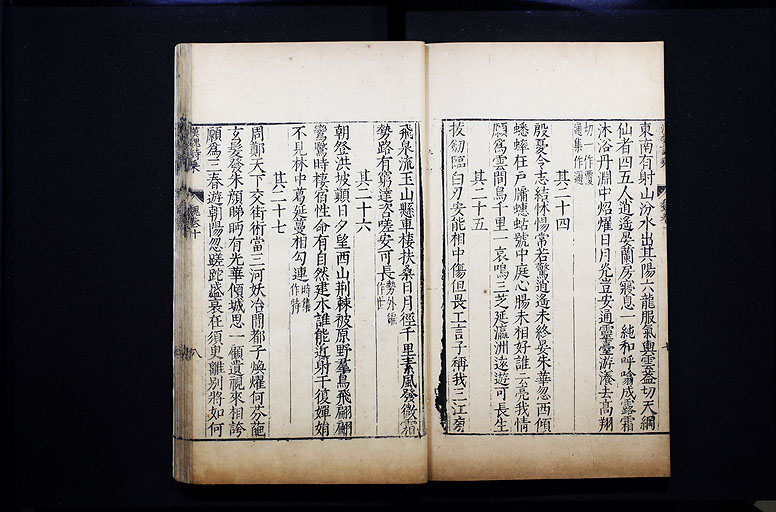 東南有射山汾水出其陽六龍服氣輿雲蓋切天綱
仙者四五人逍遙晏蘭房寢息一純和呼噏成露霜
沐浴丹淵中炤燿日月光豈安通靈臺游瀁去高翔
切一作覆
瀁集作瀁
其二十四
殷憂令志結怵惕常若驚逍遙未終晏朱華忽西傾
蟋蟀在戶牖蟪蛄號中庭心腸未相好誰云亮我情
願爲雲間鳥千里一哀鳴三芝延瀛洲遠遊可長生
其二十五
拔劒臨白刃安能相中傷但畏工言子稱我三江旁
飛泉流玉山懸車棲扶桑日月徑千里素風發微霜
勢路有窮達咨嗟安可長
其二十六
朝登洪坡顛日夕望西山荆棘被原野羣鳥飛翩翩
鸞鷖時棲宿性命有自然建木誰能近射干復嬋娟
不見林中葛延蔓相勾連
時集
作特
其二十七
周鄭天下交街術當三河妖冶閒都子煥燿何芬葩
玄髮發朱顏睇眄有光華傾城思一顧遺視來相誇
願爲三春遊朝陽忽蹉跎盛衰在須臾離別將如何
漢魏詩乘
魏卷十
八